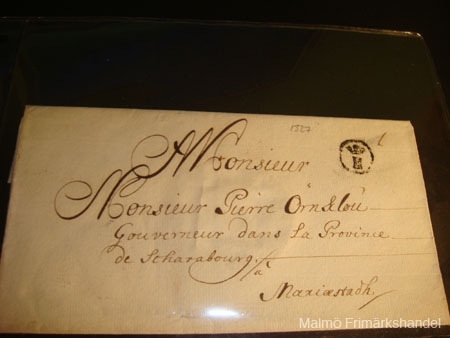 1527
Monsieur
Monsieur Pierre Örnklou
Gouverneur dans la Province
de Scharabourg.
à
Mariæstadh
Malmö Frimärkshandel